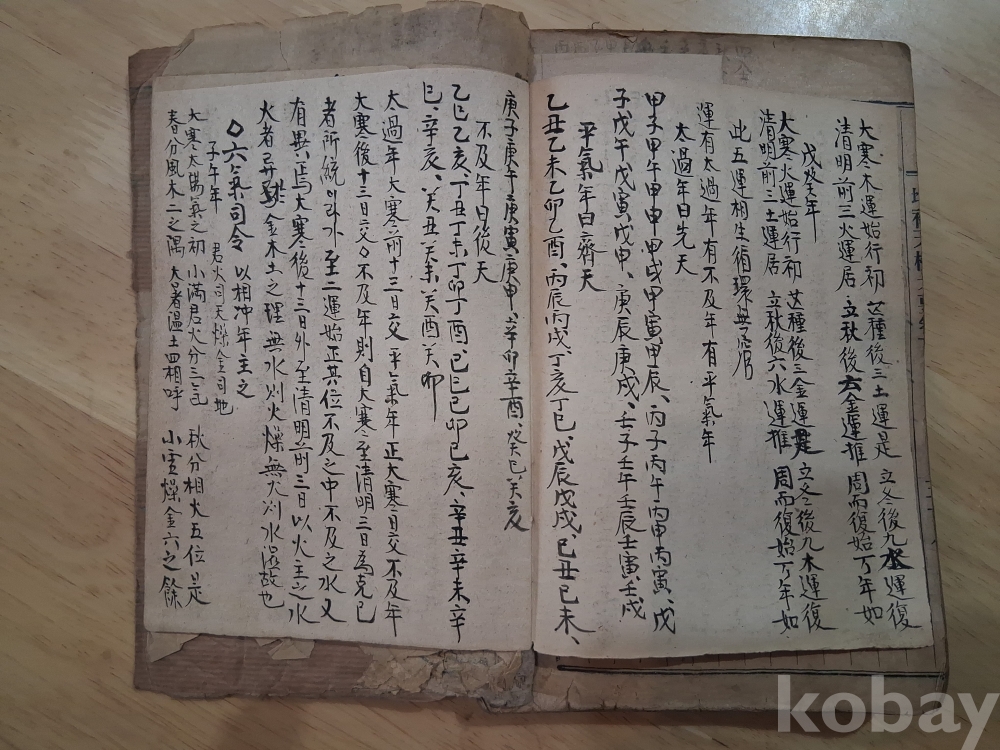 大寒木運始行初 芒種後三土運是 立冬後九水運復
清明前三火運居 立秋後六金運推 周而復始万年如
戊癸年
大寒火運始行初 芒種後三金運是 立冬後九木運復
清明前三土運居 立秋後六水運推 周而復始万年如
此五運相生循環無
運有太過年有不及年有平氣年
太過年曰先天
甲子甲午甲申甲戌甲寅甲辰、丙子丙午丙申丙寅、戊
子戊午戊寅戊申、庚辰庚戌、壬子壬午壬辰壬寅壬戌
平氣年曰齊天
乙丑乙未乙卯乙酉、丙辰丙戌、丁亥丁巳戊辰戊戌、己丑己未、
庚子庚午庚寅庚申、辛卯辛酉、癸巳癸亥
不及年曰後天
乙巳乙亥、丁丑丁未丁卯丁酉、己巳己卯己亥、辛丑辛未辛
巳、辛亥、癸丑癸未癸酉癸卯
太過年大寒前十三日交 平氣年正大寒日交不及年
大寒後十三日交〇不及年則自大寒至清明三日為克己
者所統 至二運始正其位不及之中不及之水又
有異焉大寒後十三日外至清明前三日以火主之水
火者 金木土之理無水則火燥無火則水濕故也
◇六氣司令 以相冲年主之
子午年 君火司天燥金司地
大寒太陽氣之初 小滿君火分三气 秋分相火五位是
春分風木二之隅 大暑濕土四相呼 小雪燥金六之餘
kobay